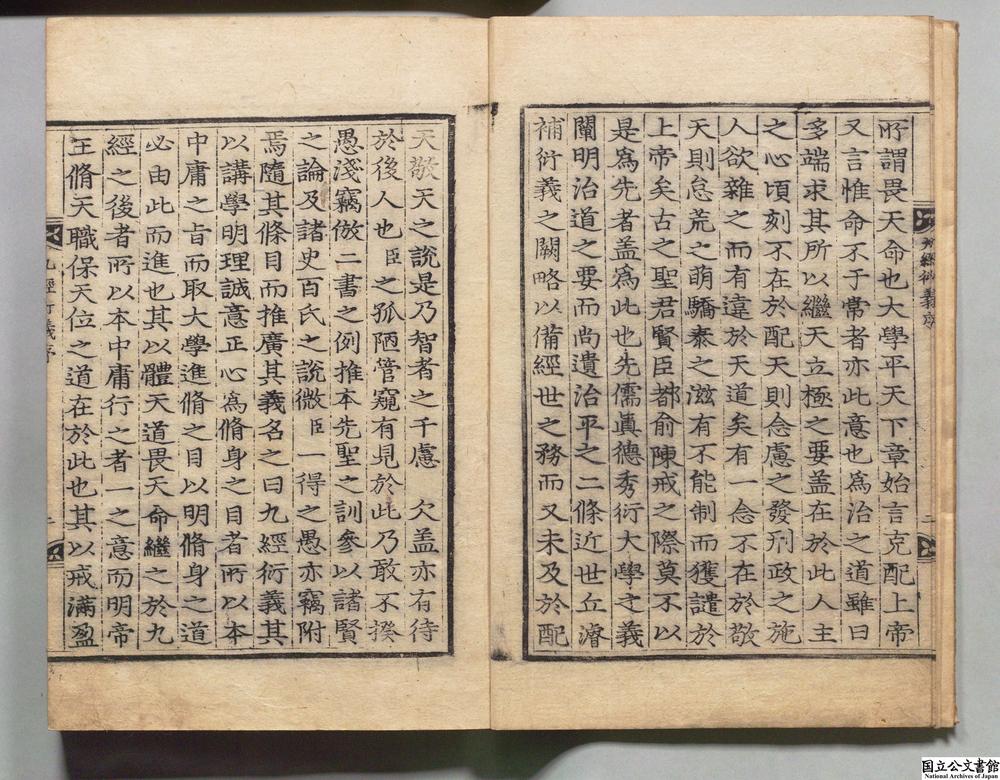 所謂畏天命也大學平天下章始言克配上帝
又言惟命不于常者亦此意也爲治之道雖曰
多端求其所以繼天立極之要盖在於此人主
之心頃刻不在於配天則念慮之發刑政之施
人欲雜之而有違於天道矣有一念不在於敬
天則怠荒之萌驕泰之滋有不能制而獲譴於
上帝矣古之聖君賢臣都俞陳戒之際莫不以
是爲先者盖爲此也先儒眞德秀衍大學之義
闡明治道之要而尚遺治平之二條近世丘濬
補衍義之闕略以備經世之務而又未及於配
九經衍義序
二
天敬天之說是乃智者之千慮欠盖亦有待
於後人也臣之孤陋管窺有見於此乃敢不揆
愚淺竊倣二書之例推本先聖之訓參以諸賢
之論及諸史百氏之說微臣一得之愚亦竊附
焉隨其條目而推廣其義名之曰九經衍義其
以講學明理誠意正心爲脩身之目者所以本
中庸之旨而取大學進脩之目以明脩身之道
必由此而進也其以體天道畏天命繼之於九
經之後者所以本中庸行之者一之意而明帝
王脩天職保天位之道在於此也其以戒滿盈
九經衍義序
二
国立公文書館
National Archives of Japan